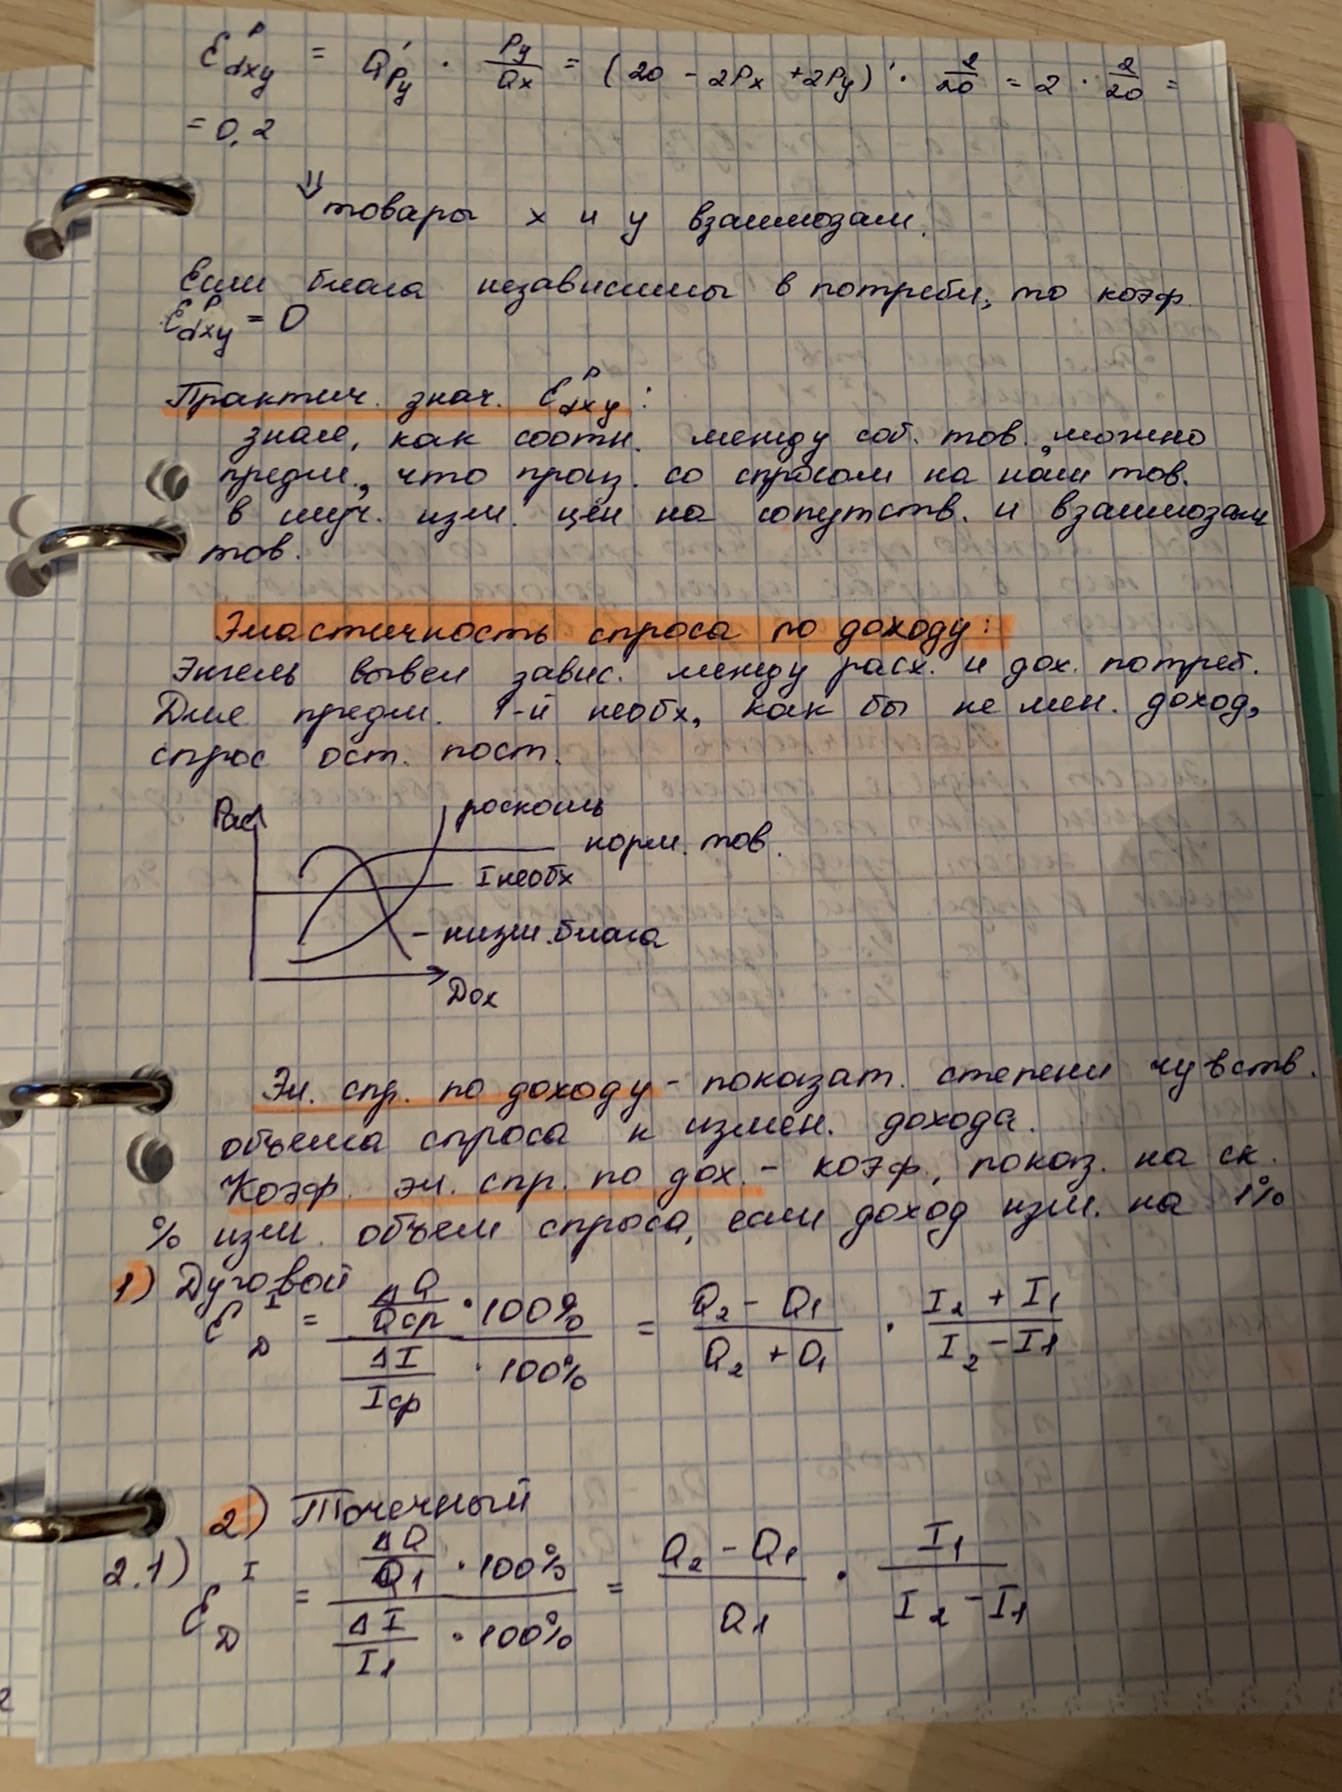 E^P_dxy = Q'_Py · Py/Qx = (20 - 2Px + 2Py)' · 2/20 = 2 · 2/20 =
= 0,2
⇓
товары x и y взаимозам.
Если блага независимы в потребл, то коэф
E^P_dxy = 0
Практич. знач. E^P_dxy :
зная, как соотн. между соб. тов. можно
предпл., что произ. со спросом на наш тов.
в случ. изм. цен на сопутств. и взаимозам
тов.
Эластичность спроса по доходу:
Энгель вывел завис. между расх. и дох. потреб.
Для предм. 1-й необх, как бы не мен. доход,
спрос ост. пост.
Расх
роскошь
норм. тов.
I необх
- низш. блага
Дох
Эл. спр. по доходу - показат. степени чувств.
объема спроса к измен. дохода.
Коэф. эл. спр. по дох. - коэф, показ. на ск.
% изм. объем спроса, если доход изм. на 1%
1) Дуговой
E^I_D = (ΔQ/Qср · 100%)/(ΔI/Iср · 100%) = (Q2 - Q1)/(Q2 + Q1) · (I2 + I1)/(I2 - I1)
2) Точечный
2.1) E^I_D = (ΔQ/Q1 · 100%)/(ΔI/I1 · 100%) = (Q2 - Q1)/Q1 · I1/(I2 - I1)